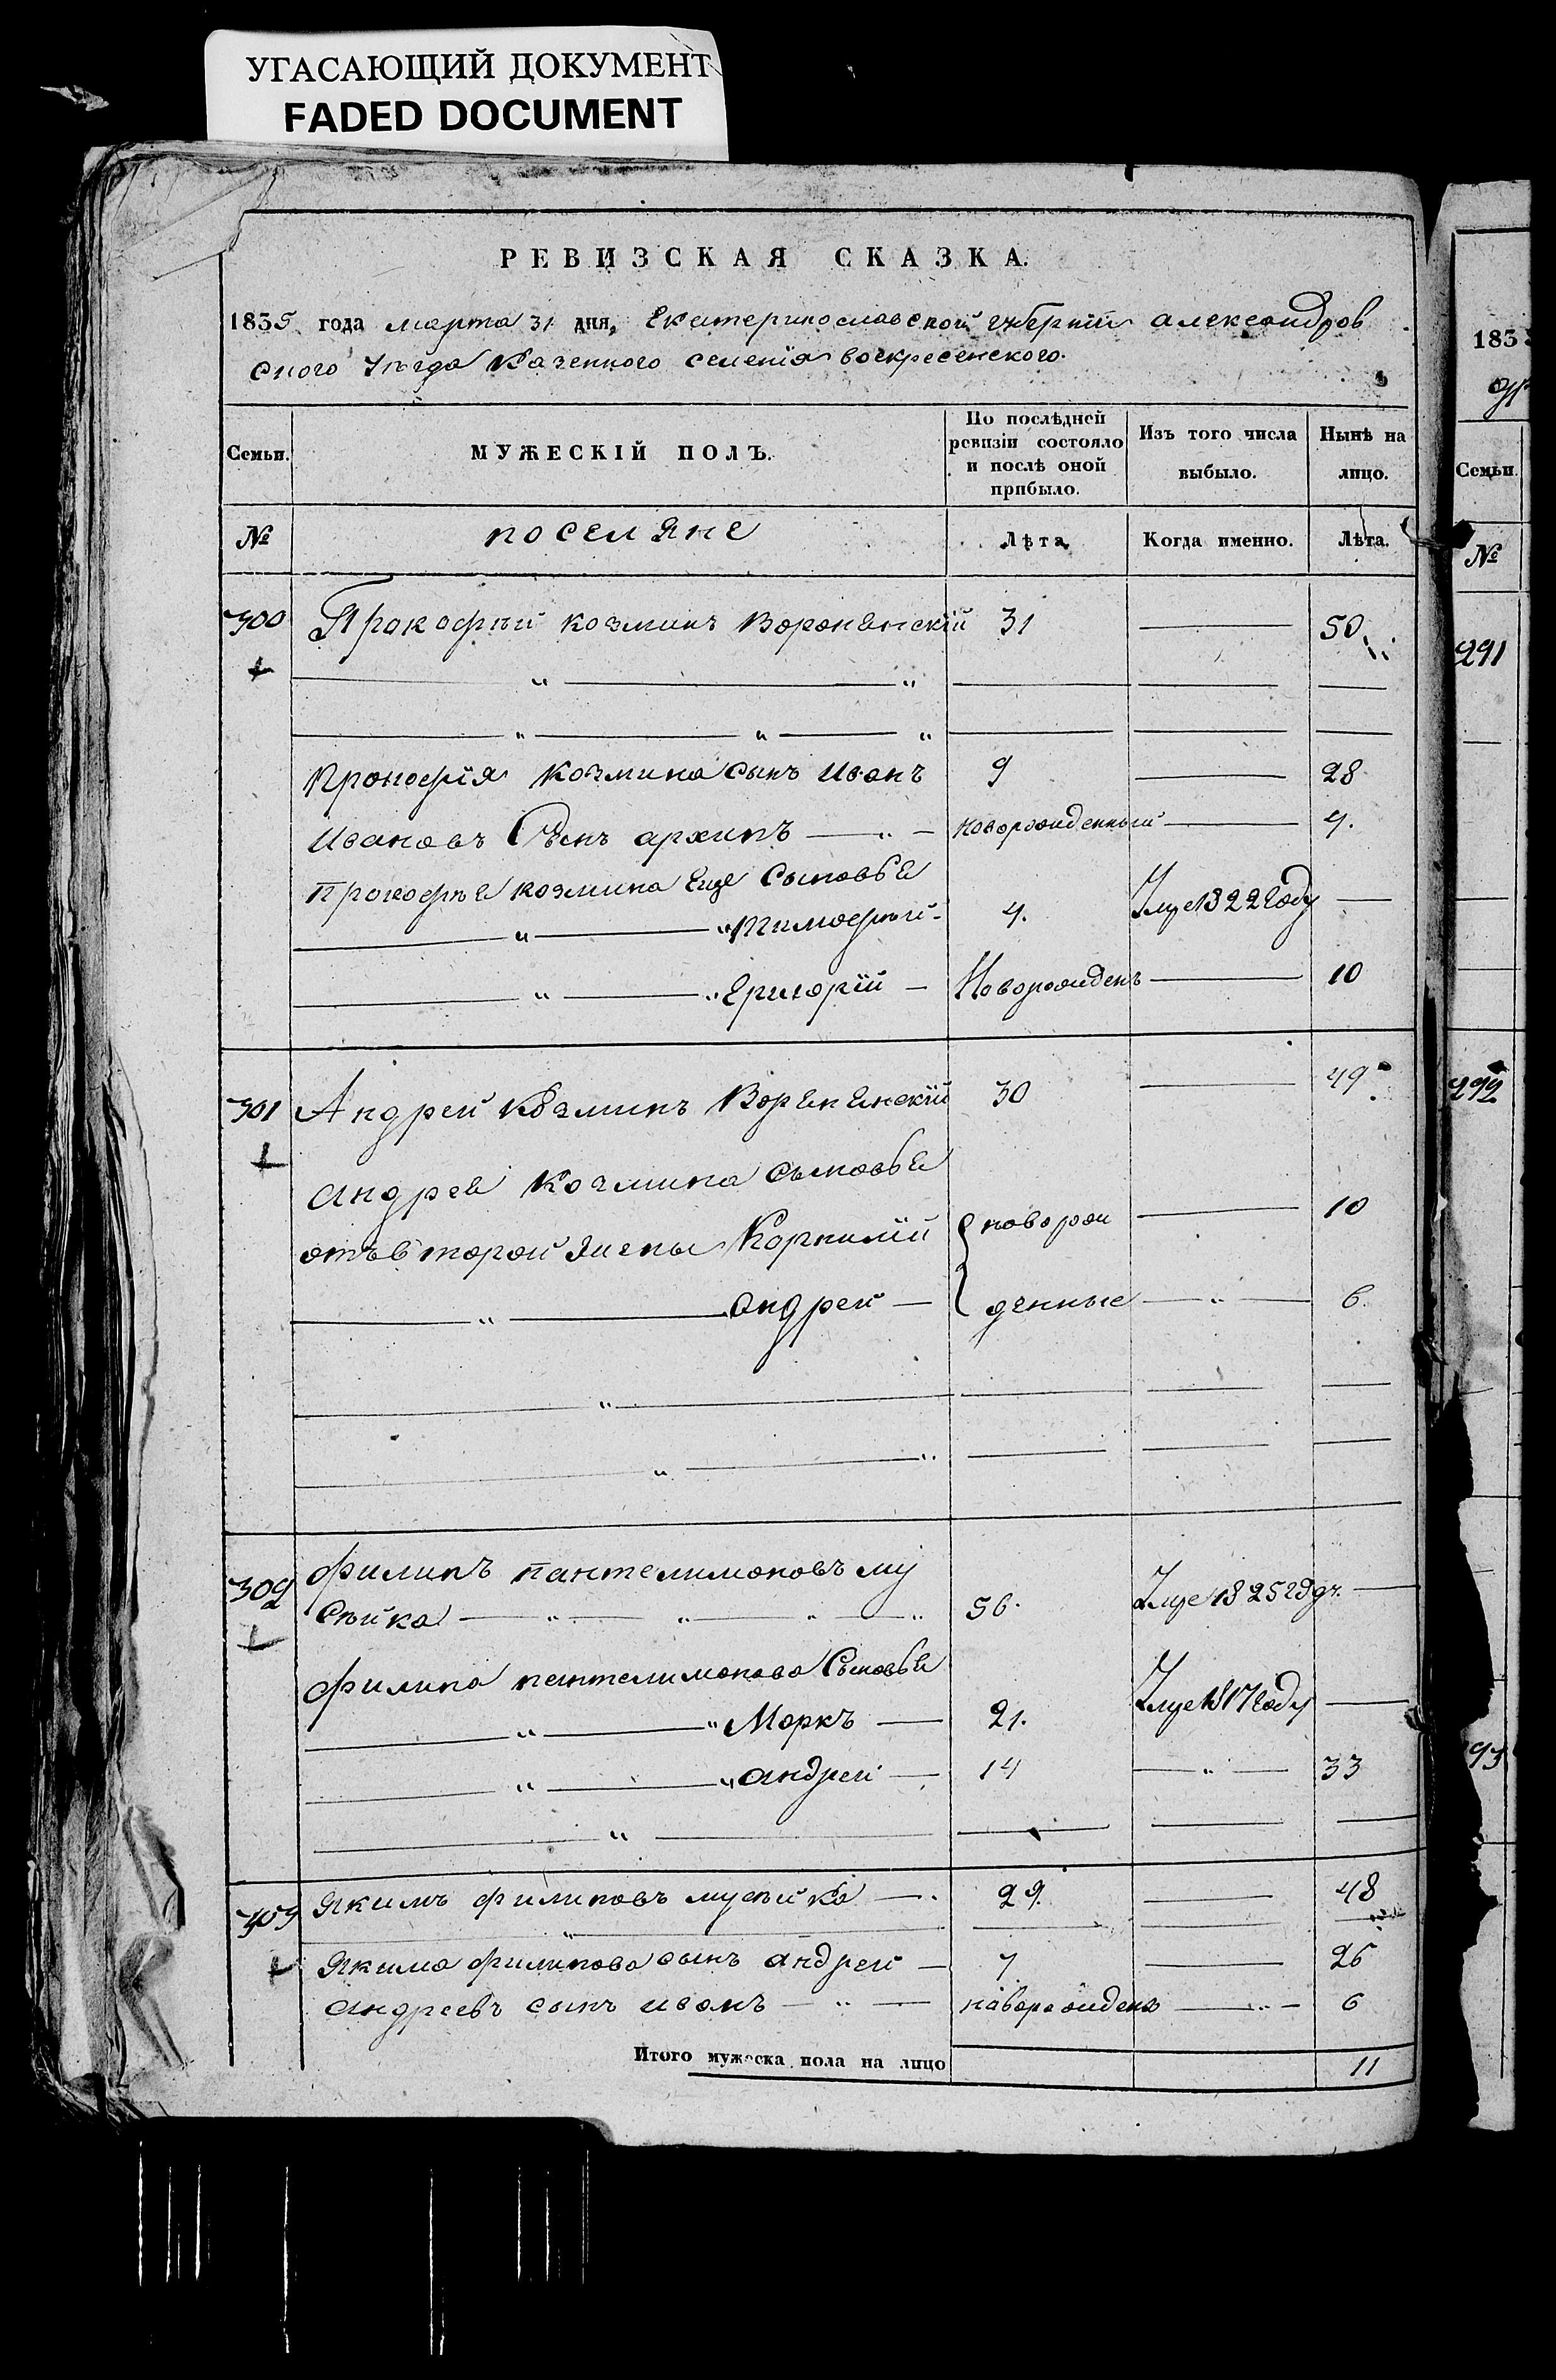 УГАСАЮЩИЙ ДОКУМЕНТ
FADED DOCUMENT
РЕВИЗСКАЯ СКАЗКА.
1835 года марта 31 дня, Екатеринославской губерніи александров
ского уезда Казенного селенія воскресенского.
Семьи. МУЖЕСКІЙ ПОЛЪ. По послѣдней ревизіи состояло и послѣ оной прибыло. Изъ того числа выбыло. Нынѣ на лицо.
№ поселяне Лѣта. Когда именно. Лѣта.
300 Прокофей козминъ Воронѣнскій 31 50.
Прокофія козмина сынъ иванъ 9 28
ивановъ Сынъ архипъ новорожденный 4.
Прокофѣе козмина Еще Сыновье
Тимофѣй 4. Умре 1822 Году
Григорій Новорожденъ 10
301 Андрей козминъ Воренѣнскій 30 49
андрея козмина сыновье
отъ второй жены Корнилій новорож 10
андрей денные 6.
302 филипъ пантелимоновъ му
сѣйка 56. Умре 1825 году.
филипа пантелимонова Сыновье
Маркъ 21. Умре 1817 Году
андрей 14 33
303 якимъ филиповъ мусѣйка 29. 48
якима филипова сынъ андрей 7 26
андреевъ сынъ иванъ новорожденъ 6
Итого мужеска пола на лицо 11
1835
Семьи.
№
291
292
93